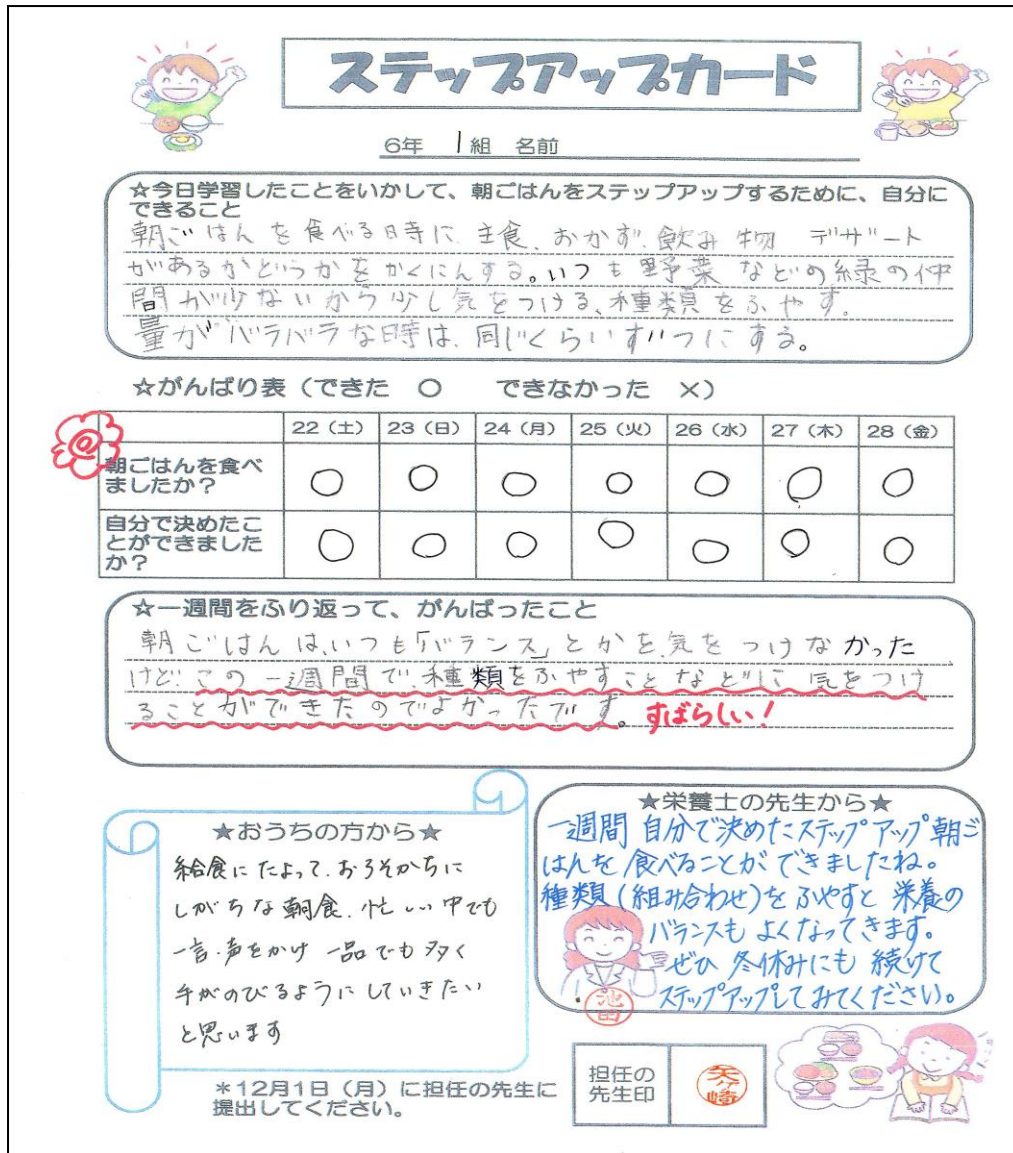 ステップアップカード
6年 1組 名前
☆今日学習したことをいかして、朝ごはんをステップアップするために、自分に
できること
朝ごはんを食べる時に、主食、おかず、飲み物 デザート
があるかどうかをかくにんする。いつも野菜などの緑の仲
間が少ないから少し気をつける、種類をふやす。
量がバラバラな時は、同じくらいずつにする。
☆がんばり表(できた ○ できなかった ×)
22(土) 23(日) 24(月) 25(火) 26(水) 27(木) 28(金)
朝ごはんを食べ
ましたか?
○ ○ ○ ○ ○ ○ ○
自分で決めたこ
とができました
か?
○ ○ ○ ○ ○ ○ ○
☆一週間をふり返って、がんばったこと
朝ごはんは、いつも「バランス」とかを気をつけなかった
けど、この一週間で、種類をふやすことなどに気をつけ
ることができたのでよかったです。すばらしい!
★おうちの方から★
給食にたよって、おろそかちに
しがちな朝食、忙しい中でも
一言・声をかけ 一品でも多く
手がのびるようにしていきたい
と思います
★栄養士の先生から★
一週間 自分で決めたステップアップ朝ご
はんを食べることができましたね。
種類(組み合わせ)をふやすと栄養の
バランスもよくなってきます。
ぜひ 冬休みにも続けて
ステップアップしてみてください。
池田
*12月1日(月)に担任の先生に
提出してください。
担任の
先生印
矢ヶ崎